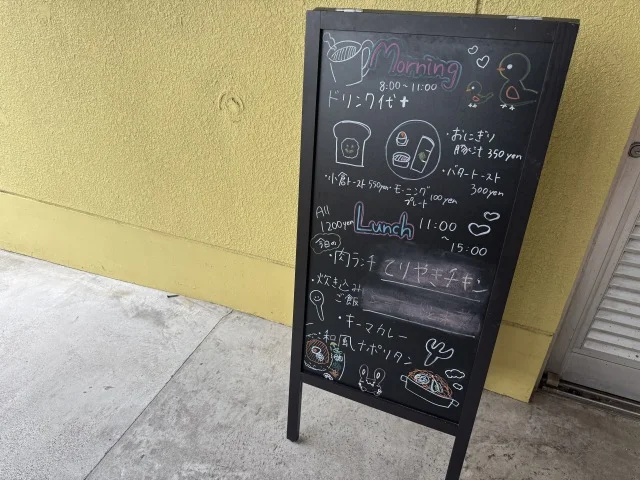 Morning
8:00~11:00
ドリンク代+
・おにぎり
豚汁 350yen
・バタートースト
300yen
・小倉トースト 550yen
モーニング
プレート 100yen
All
1200yen
Lunch 11:00
~
15:00
今日の
・肉ランチ てりやきチキン
・炊き込み
ご飯
・キーマカレー
・和風ナポリタン